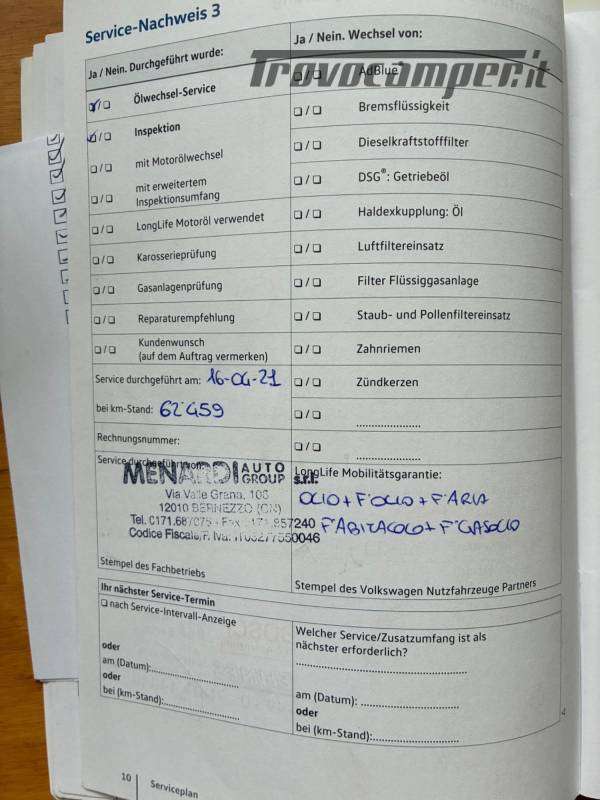 Service-Nachweis 3
Ja / Nein. Durchgeführt wurde:
Ölwechsel-Service
Inspektion
mit Motorölwechsel
mit erweitertem
Inspektionsumfang
LongLife Motoröl verwendet
Karosserieprüfung
Gasanlagenprüfung
Reparaturempfehlung
Kundenwunsch
(auf dem Auftrag vermerken)
Service durchgeführt am: 16-04-21
bei km-Stand: 62459
Rechnungsnummer:
Service durchgeführt von:
MENARDI AUTO GROUP s.r.l.
Via Valle Grana, 103
12010 BERNEZZO (CN)
Tel. 0171. 857240
Codice Fiscale/P. Iva:
Stempel des Fachbetriebs
Ja / Nein. Wechsel von:
Travocamper.it
AdBlue
Bremsflüssigkeit
Dieselkraftstofffilter
DSG®: Getriebeöl
Haldexkupplung: Öl
Luftfiltereinsatz
Filter Flüssiggasanlage
Staub- und Pollenfiltereinsatz
Zahnriemen
Zündkerzen
LongLife Mobilitätsgarantie:
OLIO + F°OLIO + F°ARIA
F°ABITACOLO + F°GASOLIO
Stempel des Volkswagen Nutzfahrzeuge Partners
Ihr nächster Service-Termin
nach Service-Intervall-Anzeige
oder
am (Datum):
oder
bei (km-Stand):
Welcher Service/Zusatzumfang ist als
nächster erforderlich?
am (Datum):
oder
bei (km-Stand):
10 Serviceplan